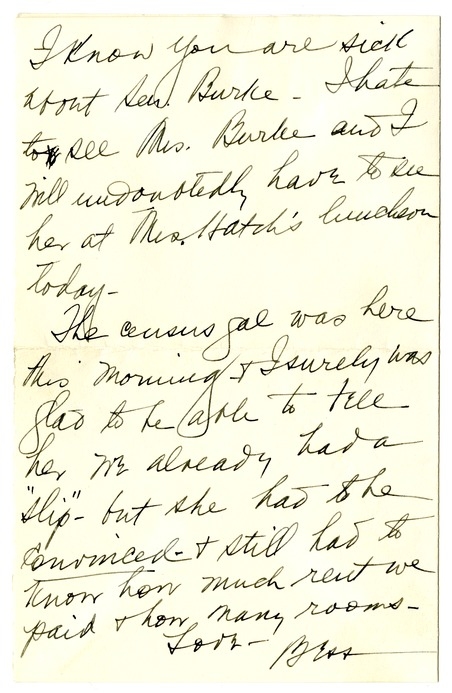 I know you are sick
about Sen. Burke - I hate
to see Mrs. Burke and I
will undoubtedly have to see
her at Mrs. Hatch's luncheon
today-
The census gal was here
this morning & I surely was
glad to be able to tell
her we already had a
"slip" - but she had to be
convinced - & still had to
know how much rent we
paid & how many rooms -
Love - Bess